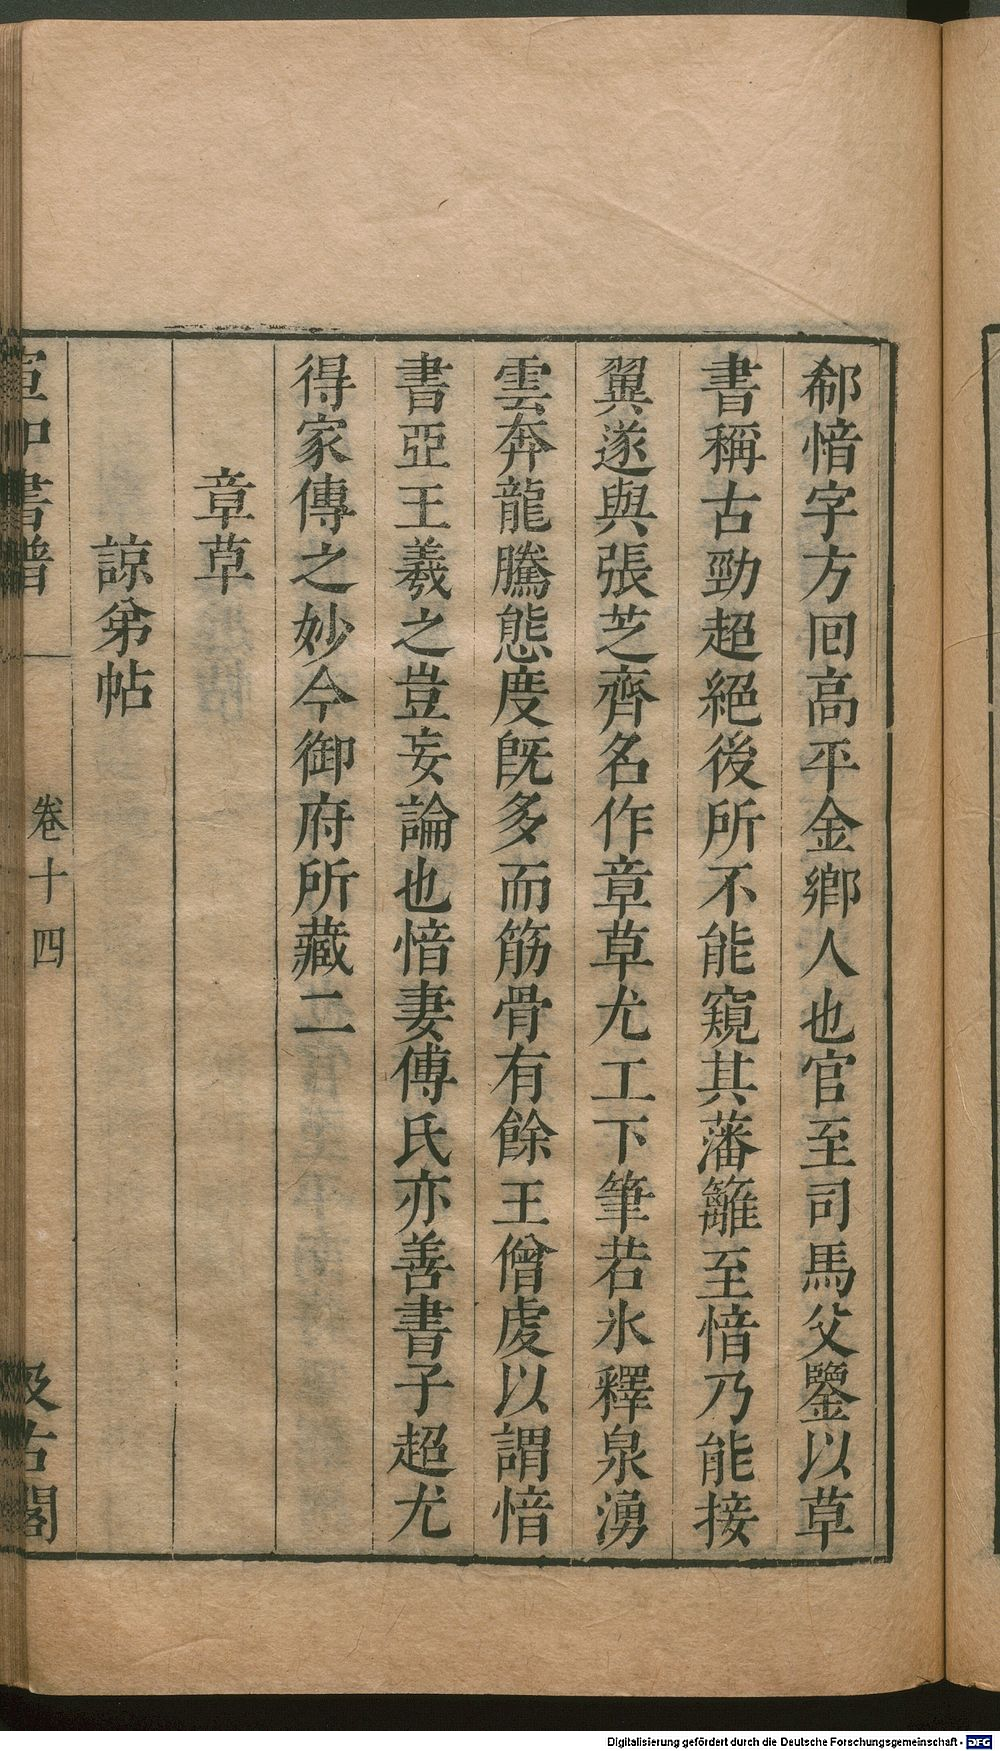 郗愔字方回高平金鄉人也官至司馬父鑒以草
書稱古勁超絕後所不能窺其藩籬至愔乃能接
翼遂與張芝齊名作章草尤工下筆若氷釋泉湧
雲奔龍騰態度旣多而筋骨有餘王僧虔以謂愔
書亞王羲之豈妄論也愔妻傅氏亦善書子超尤
得家傳之妙今御府所藏二
章草
諒弟帖
宣和書譜 卷十四 汲古閣
Digitalisierung gefördert durch die Deutsche Forschungsgemeinschaft - DFG